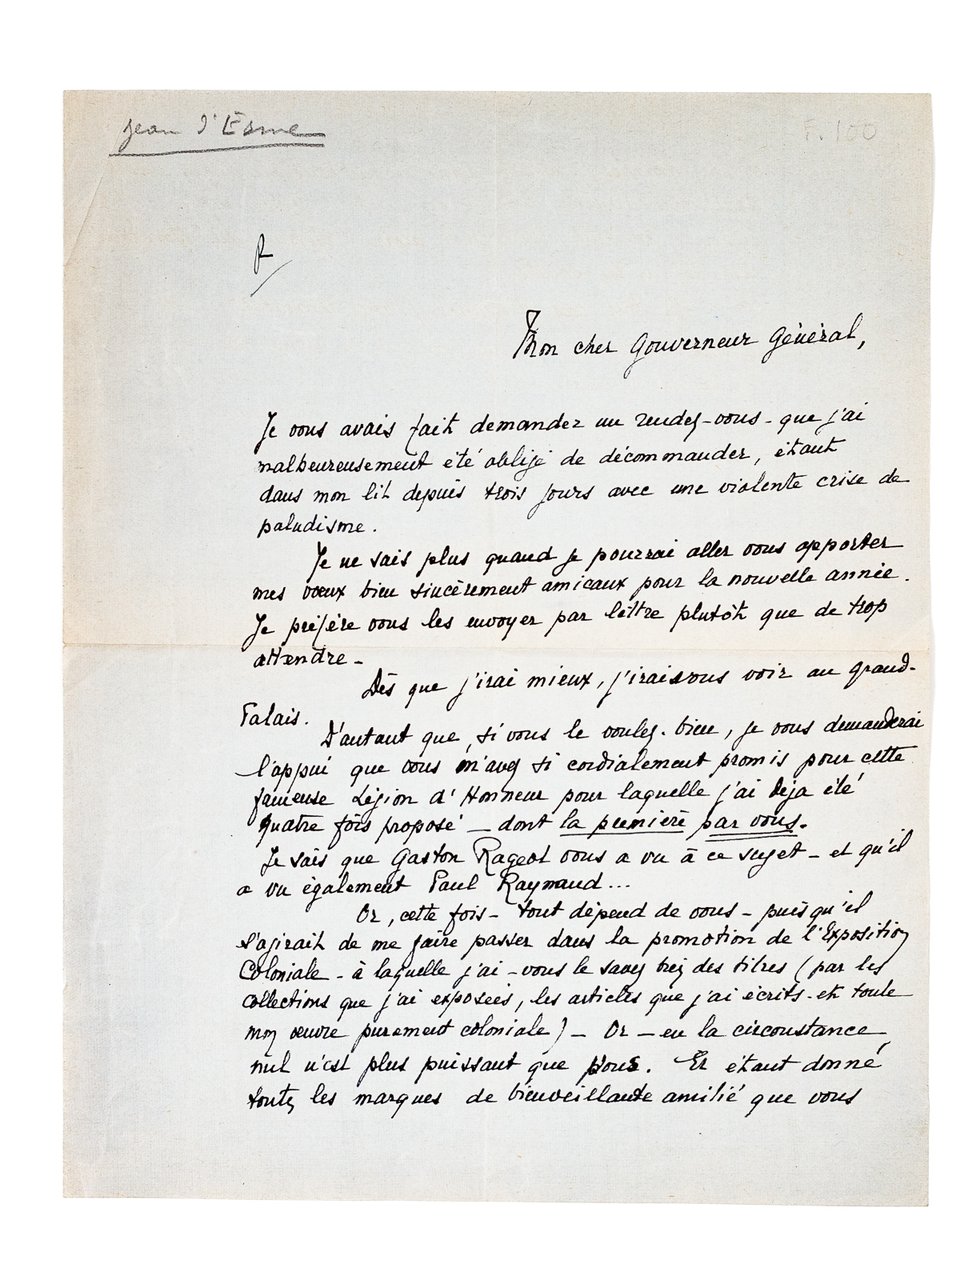 Jean d'Esme
F. 100
Mon cher Gouverneur Général,
Je vous avais fait demander un rendez-vous - que j'ai
malheureusement été obligé de décommander, étant
dans mon lit depuis trois jours avec une violente crise de
paludisme.
Je ne sais plus quand je pourrai aller vous apporter
mes vœux bien sincèrement amicaux pour la nouvelle année.
Je préfère vous les envoyer par lettre plutôt que de trop
attendre -
Dès que j'irai mieux, j'irai vous voir au Grand-
Palais.
D'autant que, si vous le voulez-bien, je vous demanderai
l'appui que vous m'avez si cordialement promis pour cette
fameuse Légion d'Honneur pour laquelle j'ai déja été
quatre fois proposé - dont la première par vous.
Je sais que Gaston Rageot vous a vu à ce sujet - et qu'il
a vu également Paul Raynaud...
Or, cette fois - tout dépend de vous - puisqu'il
s'agirait de me faire passer dans la promotion de l'Exposition
Coloniale - à laquelle j'ai - vous le savez bien des titres (par les
collections que j'ai exposées, les articles que j'ai écrits - et toute
mon œuvre purement coloniale) - Or - en la circonstance,
nul n'est plus puissant que vous. Et étant donné
toutes les marques de bienveillante amitié que vous